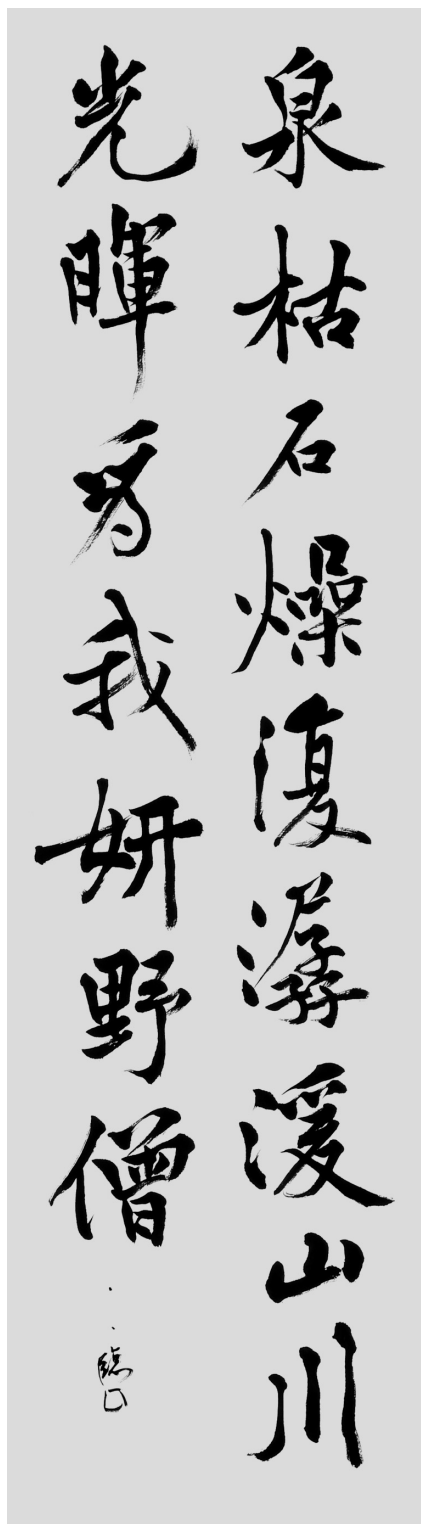 泉枯石燥復潺湲山川
光暉為我妍野僧
臨